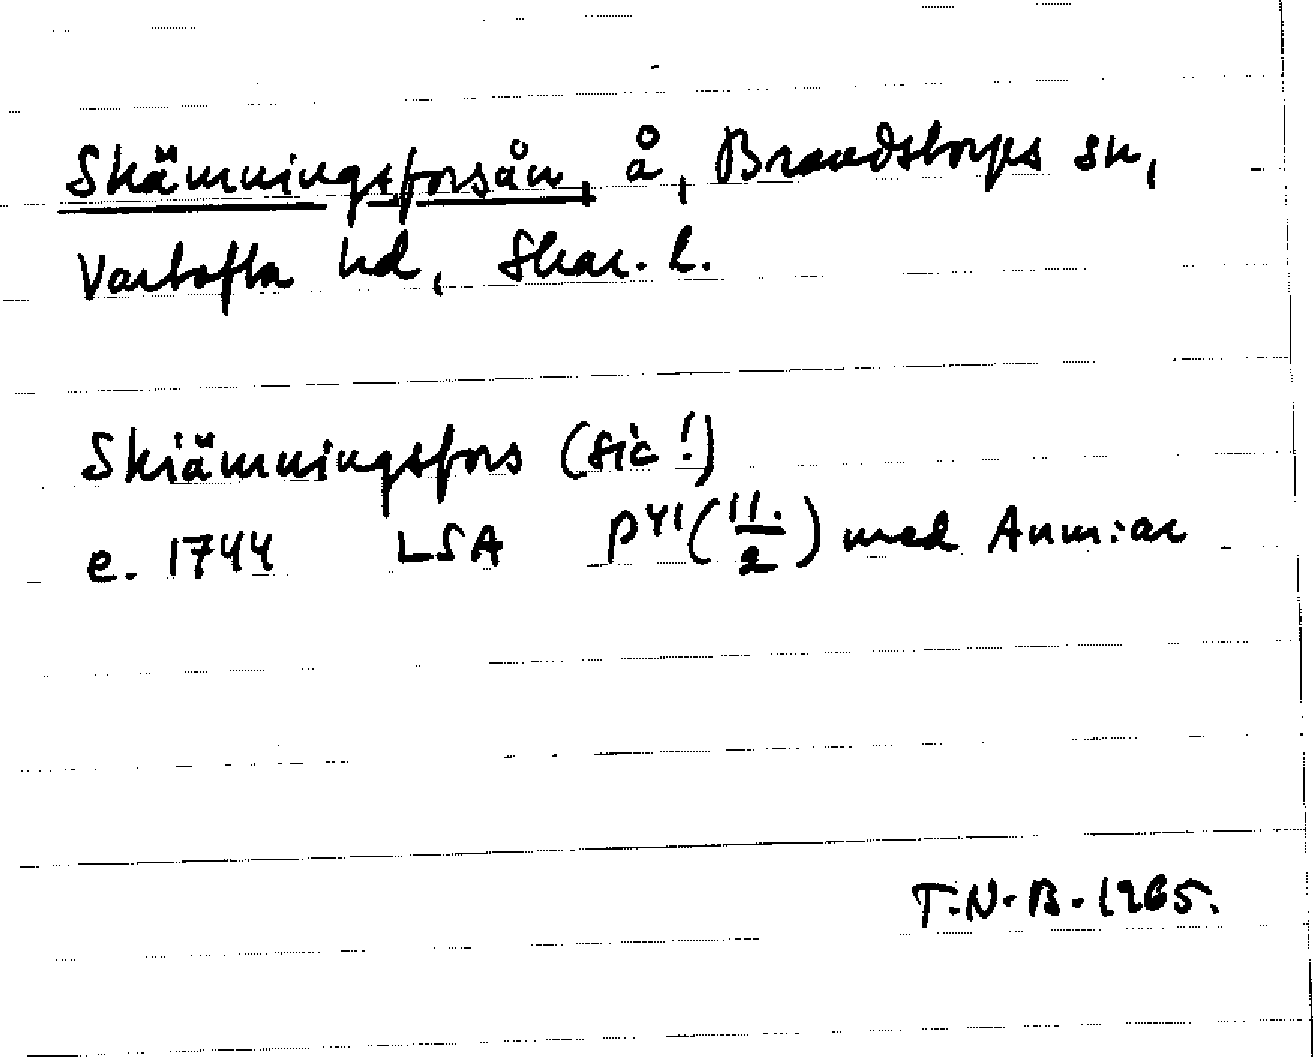 Skämningsforsån, å, Brandstorps sn,
Vartofta hd, Skar. l.
Skiämningsfors (sic!)
e. 1744 LSA P41 (11./2) med Anm:ar
T.N.B. 1965.